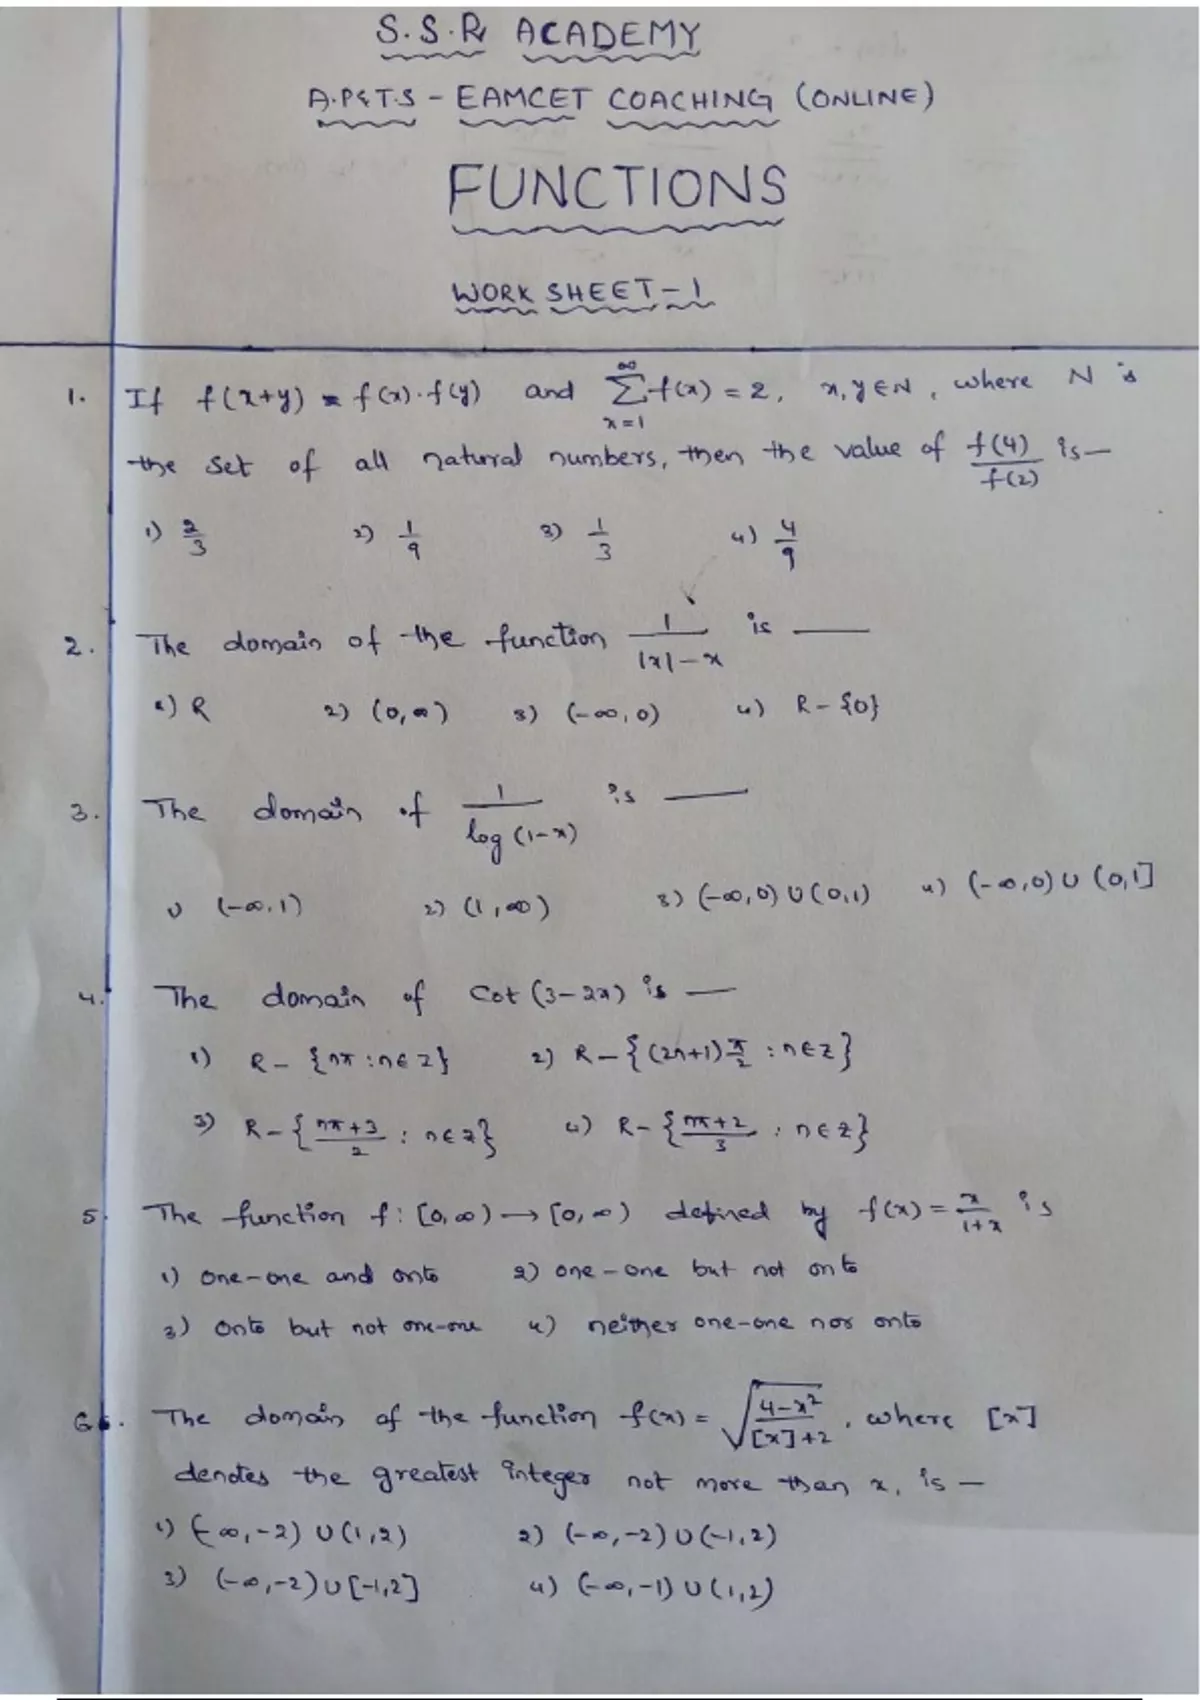 S.S.R ACADEMY
A.P&T.S - EAMCET COACHING (ONLINE)
FUNCTIONS
WORK SHEET-1
1. If f(x+y) = f(x).f(y) and ∞Σx=1 f(x) = 2, x,y∈N, where N is
the set of all natural numbers, then the value of f(4)/f(2) is —
1) 2/3 2) 1/9 3) 1/3 4) 4/9
2. The domain of the function 1/(|x|-x) is —
1) R 2) (0,∞) 3) (-∞,0) 4) R-{0}
3. The domain of 1/log(1-x) is —
1) (-∞,1) 2) (1,∞) 3) (-∞,0)∪(0,1) 4) (-∞,0)∪(0,1]
4. The domain of Cot(3-2x) is —
1) R-{nπ:n∈Z} 2) R-{(2n+1)π/2 :n∈Z}
3) R-{(nπ+3)/2 : n∈Z} 4) R-{(nπ+2)/3 : n∈Z}
5. The function f:[0,∞)→[0,∞) defined by f(x)=x/(1+x) is
1) one-one and onto 2) one-one but not onto
3) onto but not one-one 4) neither one-one nor onto
6. The domain of the function f(x)=√((4-x²)/([x]+2)), where [x]
denotes the greatest integer not more than x, is —
1) (-∞,-2)∪(1,2) 2) (-∞,-2)∪(-1,2)
3) (-∞,-2)∪[-1,2] 4) (-∞,-1)∪(1,2)